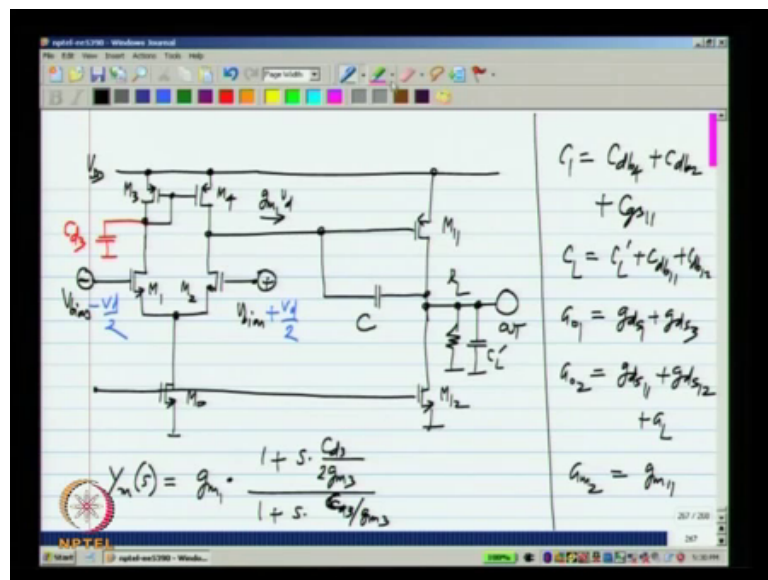 nptel-ee5390 - Windows Journal
File Edit View Insert Actions Tools Help
Page Width
B I
V_DD
M3 M4
g_m1 v_d
M11
C_d3
M1 M2
V_bias - vd/2
V_bias + vd/2
C
R_L
OUT
C_L'
M0
M12
Y_m(s) = g_m1 · (1 + s · C_d3/2g_m3) / (1 + s · C_d3/g_m3)
C_1 = C_db4 + C_db2
+ C_gs11
C_L = C_L' + C_db11 + C_db12
G_01 = g_ds1 + g_ds3
G_02 = g_ds11 + g_ds12
+ G_L
G_m2 = g_m11
NPTEL
267 / 268
267
nptel-ee5390 - Windo...
100%
5:30 PM